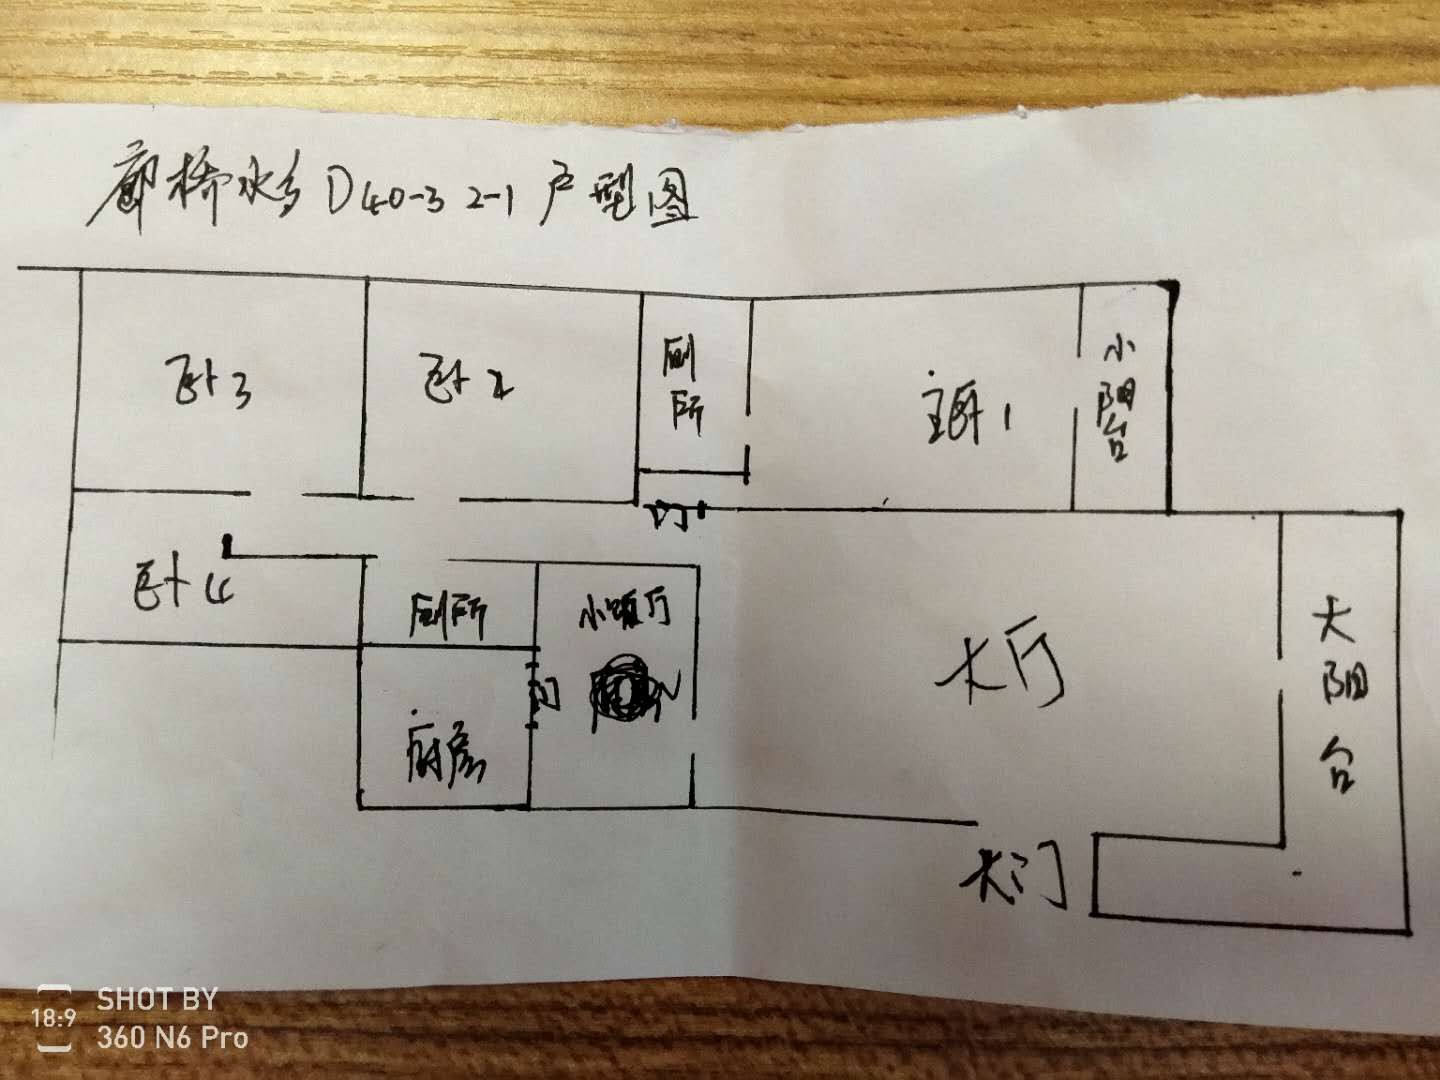 廊桥水乡D40-3 2-1户型图
卧3
卧2
厕所
主卧1
小阳台
门
卧4
厕所
小饭厅
大厅
大阳台
门
厨房
大门
18:9
SHOT BY
360 N6 Pro